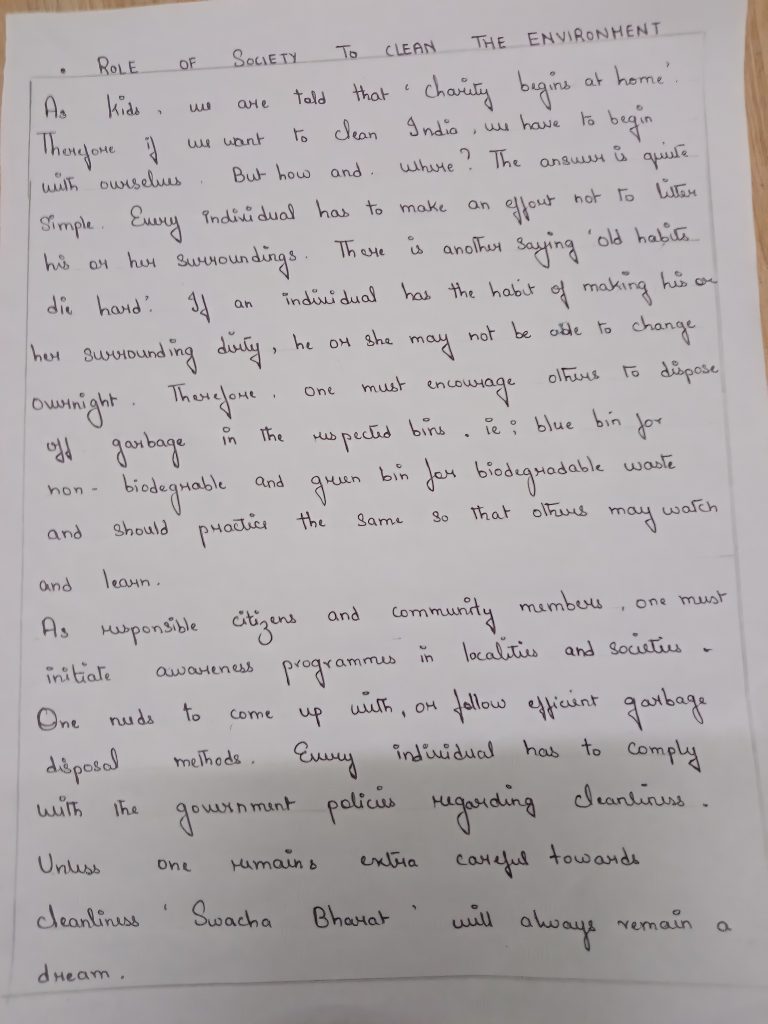 • ROLE OF SOCIETY TO CLEAN THE ENVIRONMENT
As kids, we are told that 'charity begins at home'.
Therefore if we want to clean India, we have to begin
with ourselves. But how and. where? The answer is quite
simple. Every individual has to make an effort not to litter
his or her surroundings. There is another saying 'old habits
die hard'. If an individual has the habit of making his or
her surrounding dirty, he or she may not be able to change
overnight. Therefore, one must encourage others to dispose
off garbage in the respected bins. ie; blue bin for
non- biodegrable and green bin for biodegradable waste
and should practice the same so that others may watch
and learn.
As responsible citizens and community members, one must
initiate awareness programmes in localities and societies.
One needs to come up with, or follow efficient garbage
disposal methods. Every individual has to comply
with the government policies regarding cleanliness.
Unless one remains extra careful towards
cleanliness 'Swacha Bharat' will always remain a
dream.